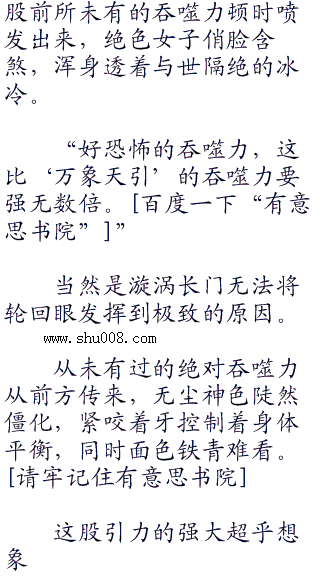 股前所未有的吞噬力顿时喷
发出来，绝色女子俏脸含
煞，浑身透着与世隔绝的冰
冷。
“好恐怖的吞噬力，这
比‘万象天引’的吞噬力要
强无数倍。[百度一下“有意
思书院”]”
当然是漩涡长门无法将
轮回眼发挥到极致的原因。
www.shu008.com
从未有过的绝对吞噬力
从前方传来，无尘神色陡然
僵化，紧咬着牙控制着身体
平衡，同时面色铁青难看。
[请牢记住有意思书院]
这股引力的强大超乎想
象